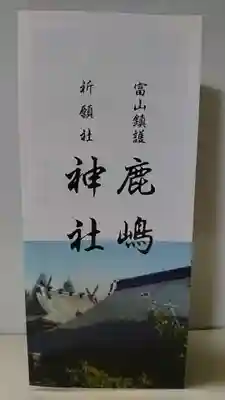 富山鎮護
祈願社
鹿嶋
神社